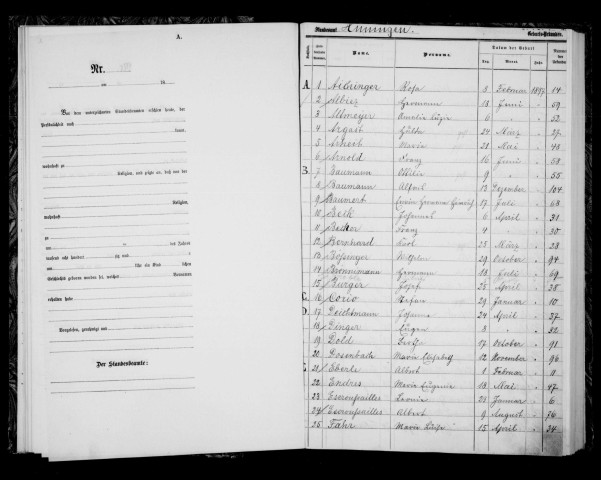 A.
Nr.
am 18
Vor dem unterzeichneten Standesbeamten erschien heute, der
Persönlichkeit nach
kannt,
wohnhaft zu
Religion, und zeigte an, daß von der
Religion,
wohnhaft
zu
am des Jahres
tausend acht hundert zig und
um Uhr ein Kind lichen
Geschlechts geboren worden sei, welches Vornamen
erhalten habe
Vorgelesen, genehmigt und
Der Standesbeamte:
Standesamt Hüningen. Geburts-Urkunden
Name. Vorname. Datum der Geburt
Tag Monat Jahr
A. 1 Aichinger Rosa 8 Februar 1897 14
2 Albiez Hermann 18 Juni " 59
3 Altmeyer Amalie 6 " " 52
4 Argast 24 März " 27
5 Arnold Maria 21 Mai " 45
6 Arnold Franz 16 Juni " 58
B. 7 Baumann 9 " " 55
8 Baumann Alfred 13 Dezember " 104
9 Baumert 17 Juli " 68
10 Beck Johannes 6 April " 31
11 Becker Franz 4 " " 30
12 Bernhard Karl 25 März " 28
13 Bossinger 29 October " 94
14 Bronnimann Hermann 18 Juli " 69
15 Burger Josef 25 April " 38
C. 16 Corio Stefan 29 Januar " 10
D. 17 Deichtmann Johanna 24 April " 37
18 Dinger Eugen 8 " " 32
19 Dold Luise 17 October " 91
20 Dosenbach Maria Elisabeth 12 November " 96
21 Eberle Albert 1 Februar " 11
22 Endres Maria Eugenie 18 Mai " 47
23 Escoufailles Leonie 23 Januar " 6
24 Escoufailles Albert 9 August " 76
25 Fahr Maria Luise 15 April " 34